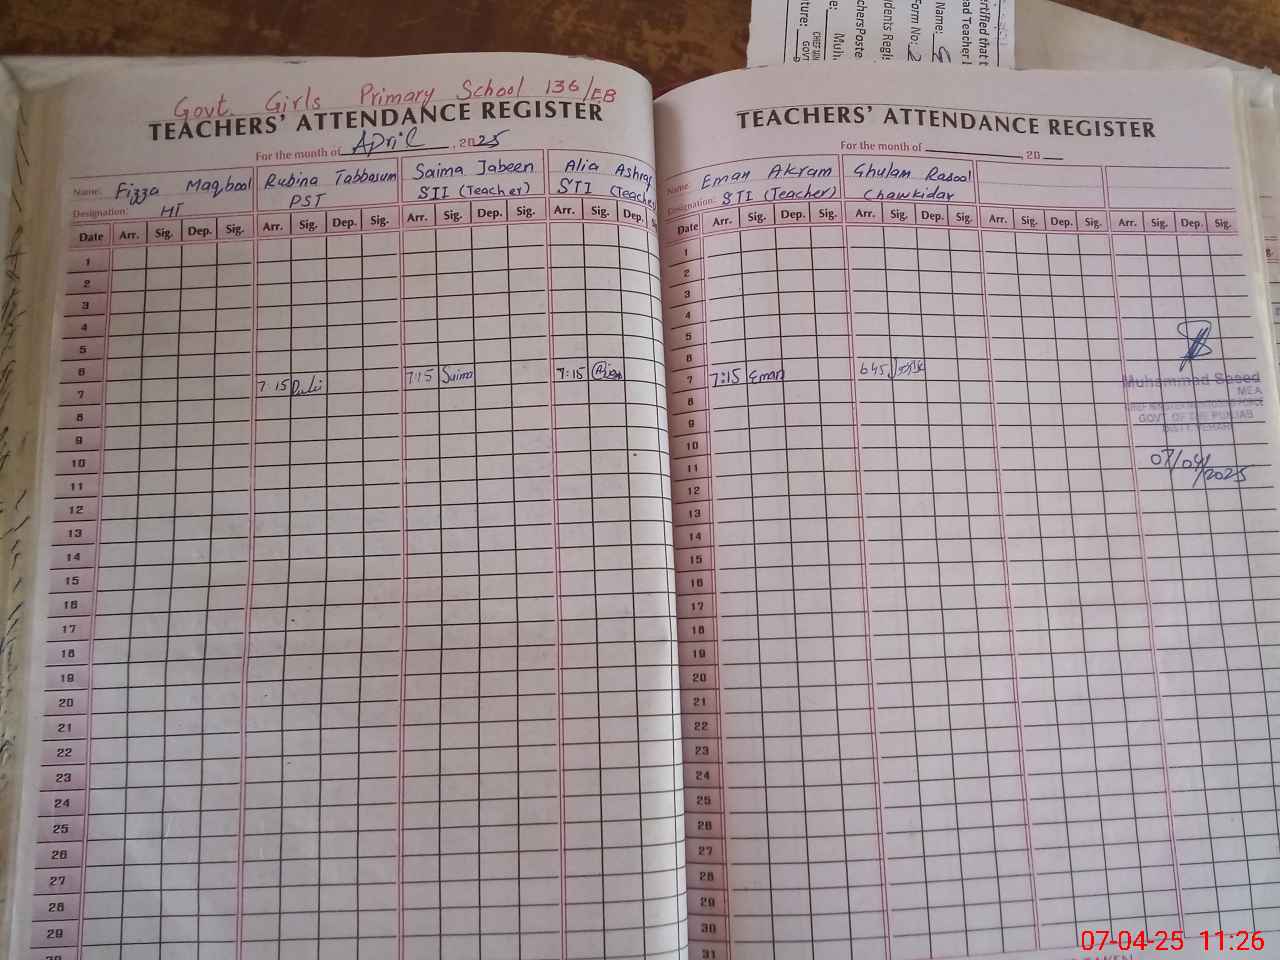 Govt. Girls Primary School 136/EB
TEACHERS' ATTENDANCE REGISTER
For the month of April, 2025
Name: Fizza Maqbool Rubina Tabbasum Saima Jabeen Alia Ashraf
Designation: HT PST STI (Teacher) STI (Teacher)
Date Arr. Sig. Dep. Sig. Arr. Sig. Dep. Sig. Arr. Sig. Dep. Sig. Arr. Sig. Dep.
1
2
3
4
5
6
7 7:15 7:15 Saima 7:15
8
9
10
11
12
13
14
15
16
17
18
19
20
21
22
23
24
25
26
27
28
29
30
TEACHERS' ATTENDANCE REGISTER
For the month of , 20
Name: Eman Akram Ghulam Rasool
Designation: STI (Teacher) Chawkidar
Date Arr. Sig. Dep. Sig. Arr. Sig. Dep. Sig. Arr. Sig. Dep. Sig. Arr. Sig. Dep. Sig.
1
2
3
4
5
6
7 7:15 Eman 6:45
8
9
10
11
12
13
14
15
16
17
18
19
20
21
22
23
24
25
26
27
28
29
30
31
Muhammad Saeed
MEA
GOVT. OF THE PUNJAB
07/04/2025
07-04-25 11:26